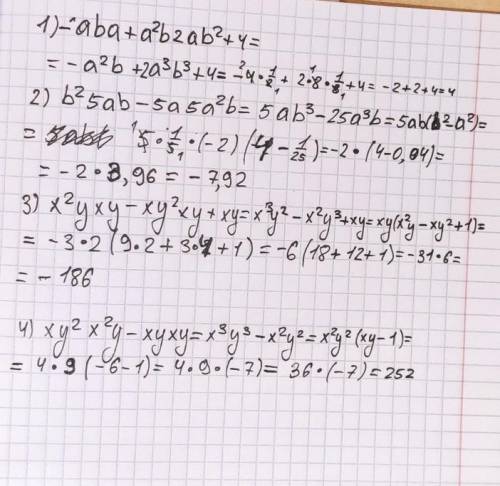 1) -aba + a²b2ab² + 4 =
= -a²b + 2a³b³ + 4 = -4 · 1/2 + 2 · 8 · 1/8 + 4 = -2 + 2 + 4 = 4
2) b²5ab - 5a5a²b = 5ab³ - 25a³b = 5ab(b²2a²) =
= 5 · 1/5 · (-2) (4 - 1/25) = -2 · (4 - 0,04) =
= -2 · 3,96 = -7,92
3) x²yxy - xy²xy + xy = x³y² - x²y³ + xy = xy(x²y - xy² + 1) =
= -3 · 2 (9 · 2 + 3 · 4 + 1) = -6 (18 + 12 + 1) = -31 · 6 =
= -186
4) xy² x²y - xyxy = x³y³ - x²y² = x²y² (xy - 1) =
= 4 · 9 (-6 - 1) = 4 · 9 · (-7) = 36 · (-7) = 252